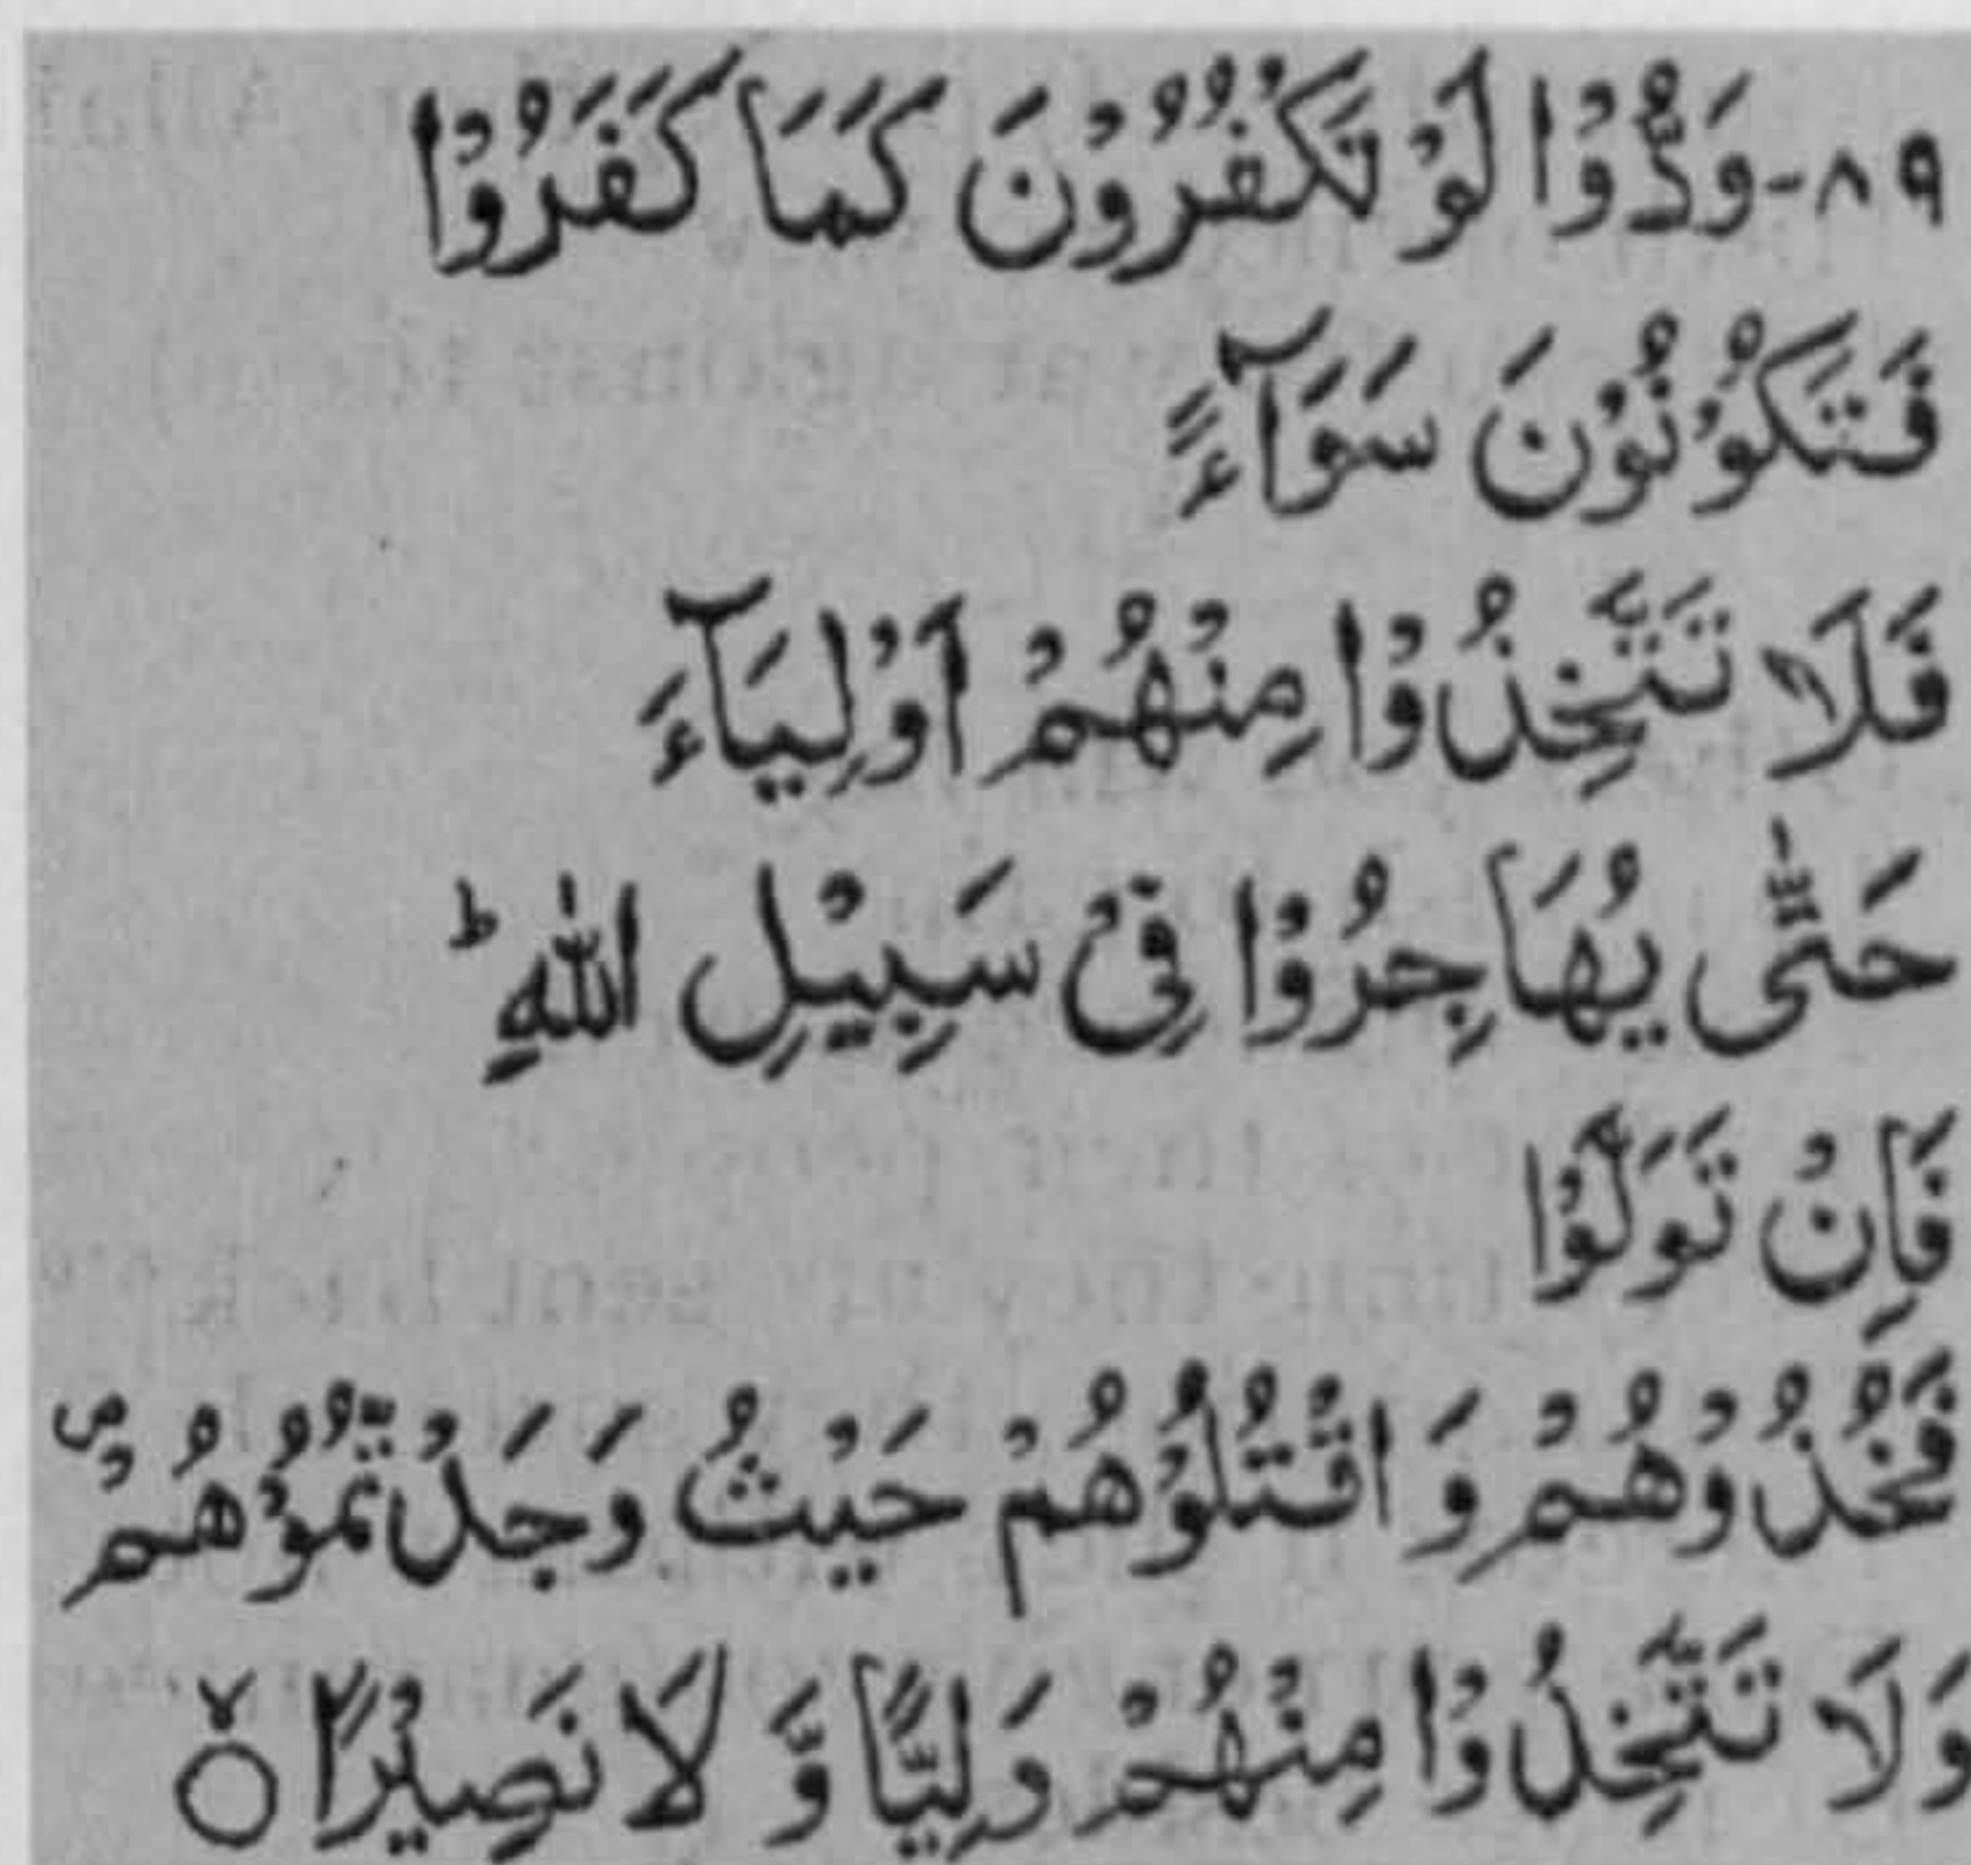 ٨٩-وَدُّوْا لَوْ تَكْفُرُوْنَ كَمَا كَفَرُوْا
فَتَكُوْنُوْنَ سَوَآءً
فَلَا تَتَّخِذُوْا مِنْهُمْ اَوْلِيَآءَ
حَتّٰى يُهَاجِرُوْا فِىْ سَبِيْلِ اللّٰهِ ؕ
فَاِنْ تَوَلَّوْا
فَخُذُوْهُمْ وَ اقْتُلُوْهُمْ حَيْثُ وَجَدْتُّمُوْهُمْ ۪
وَلَا تَتَّخِذُوْا مِنْهُمْ وَلِيًّا وَّ لَا نَصِيْرًا ۙ○